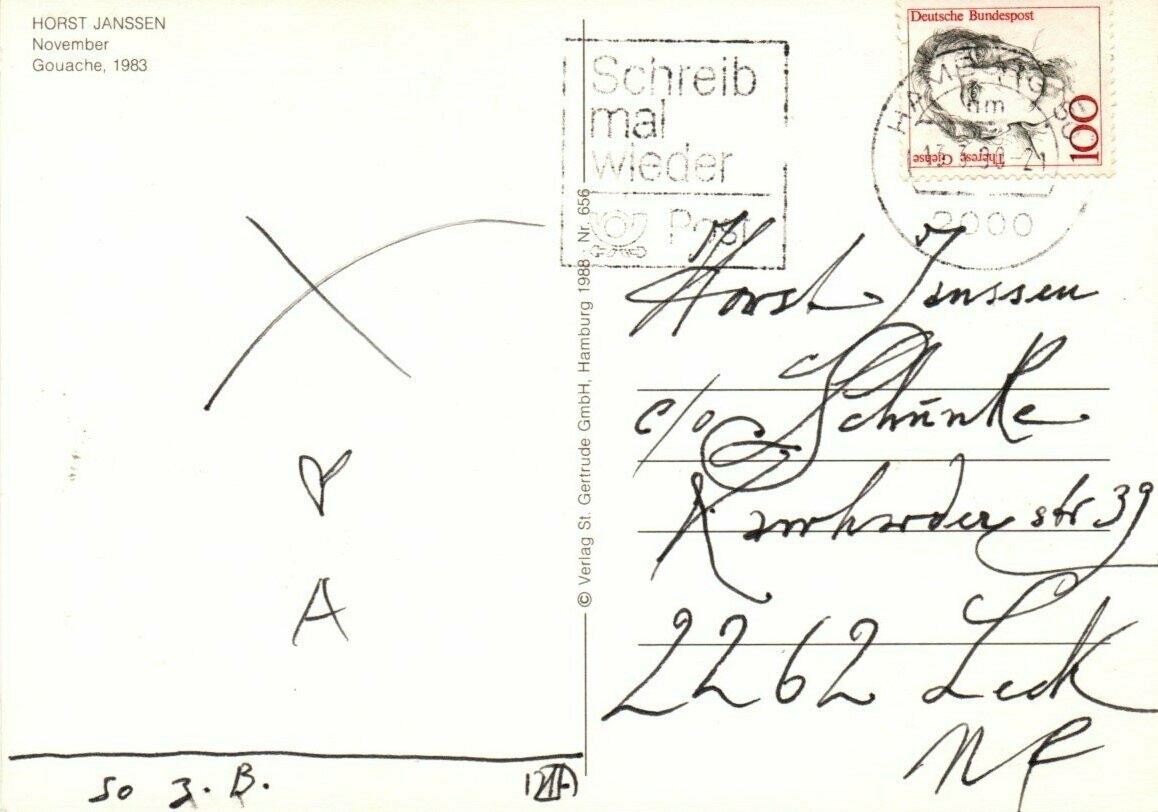 HORST JANSSEN
November
Gouache, 1983
Schreib
mal
wieder
Post
Deutsche Bundespost
100
Therese Giehse
13.3.90-21
2000
© Verlag St. Gertrude GmbH, Hamburg 1988 · Nr. 656
Horst Janssen
c/o Schünke
Karrharder str 39
2262 Leck
NF
A
so z. B.